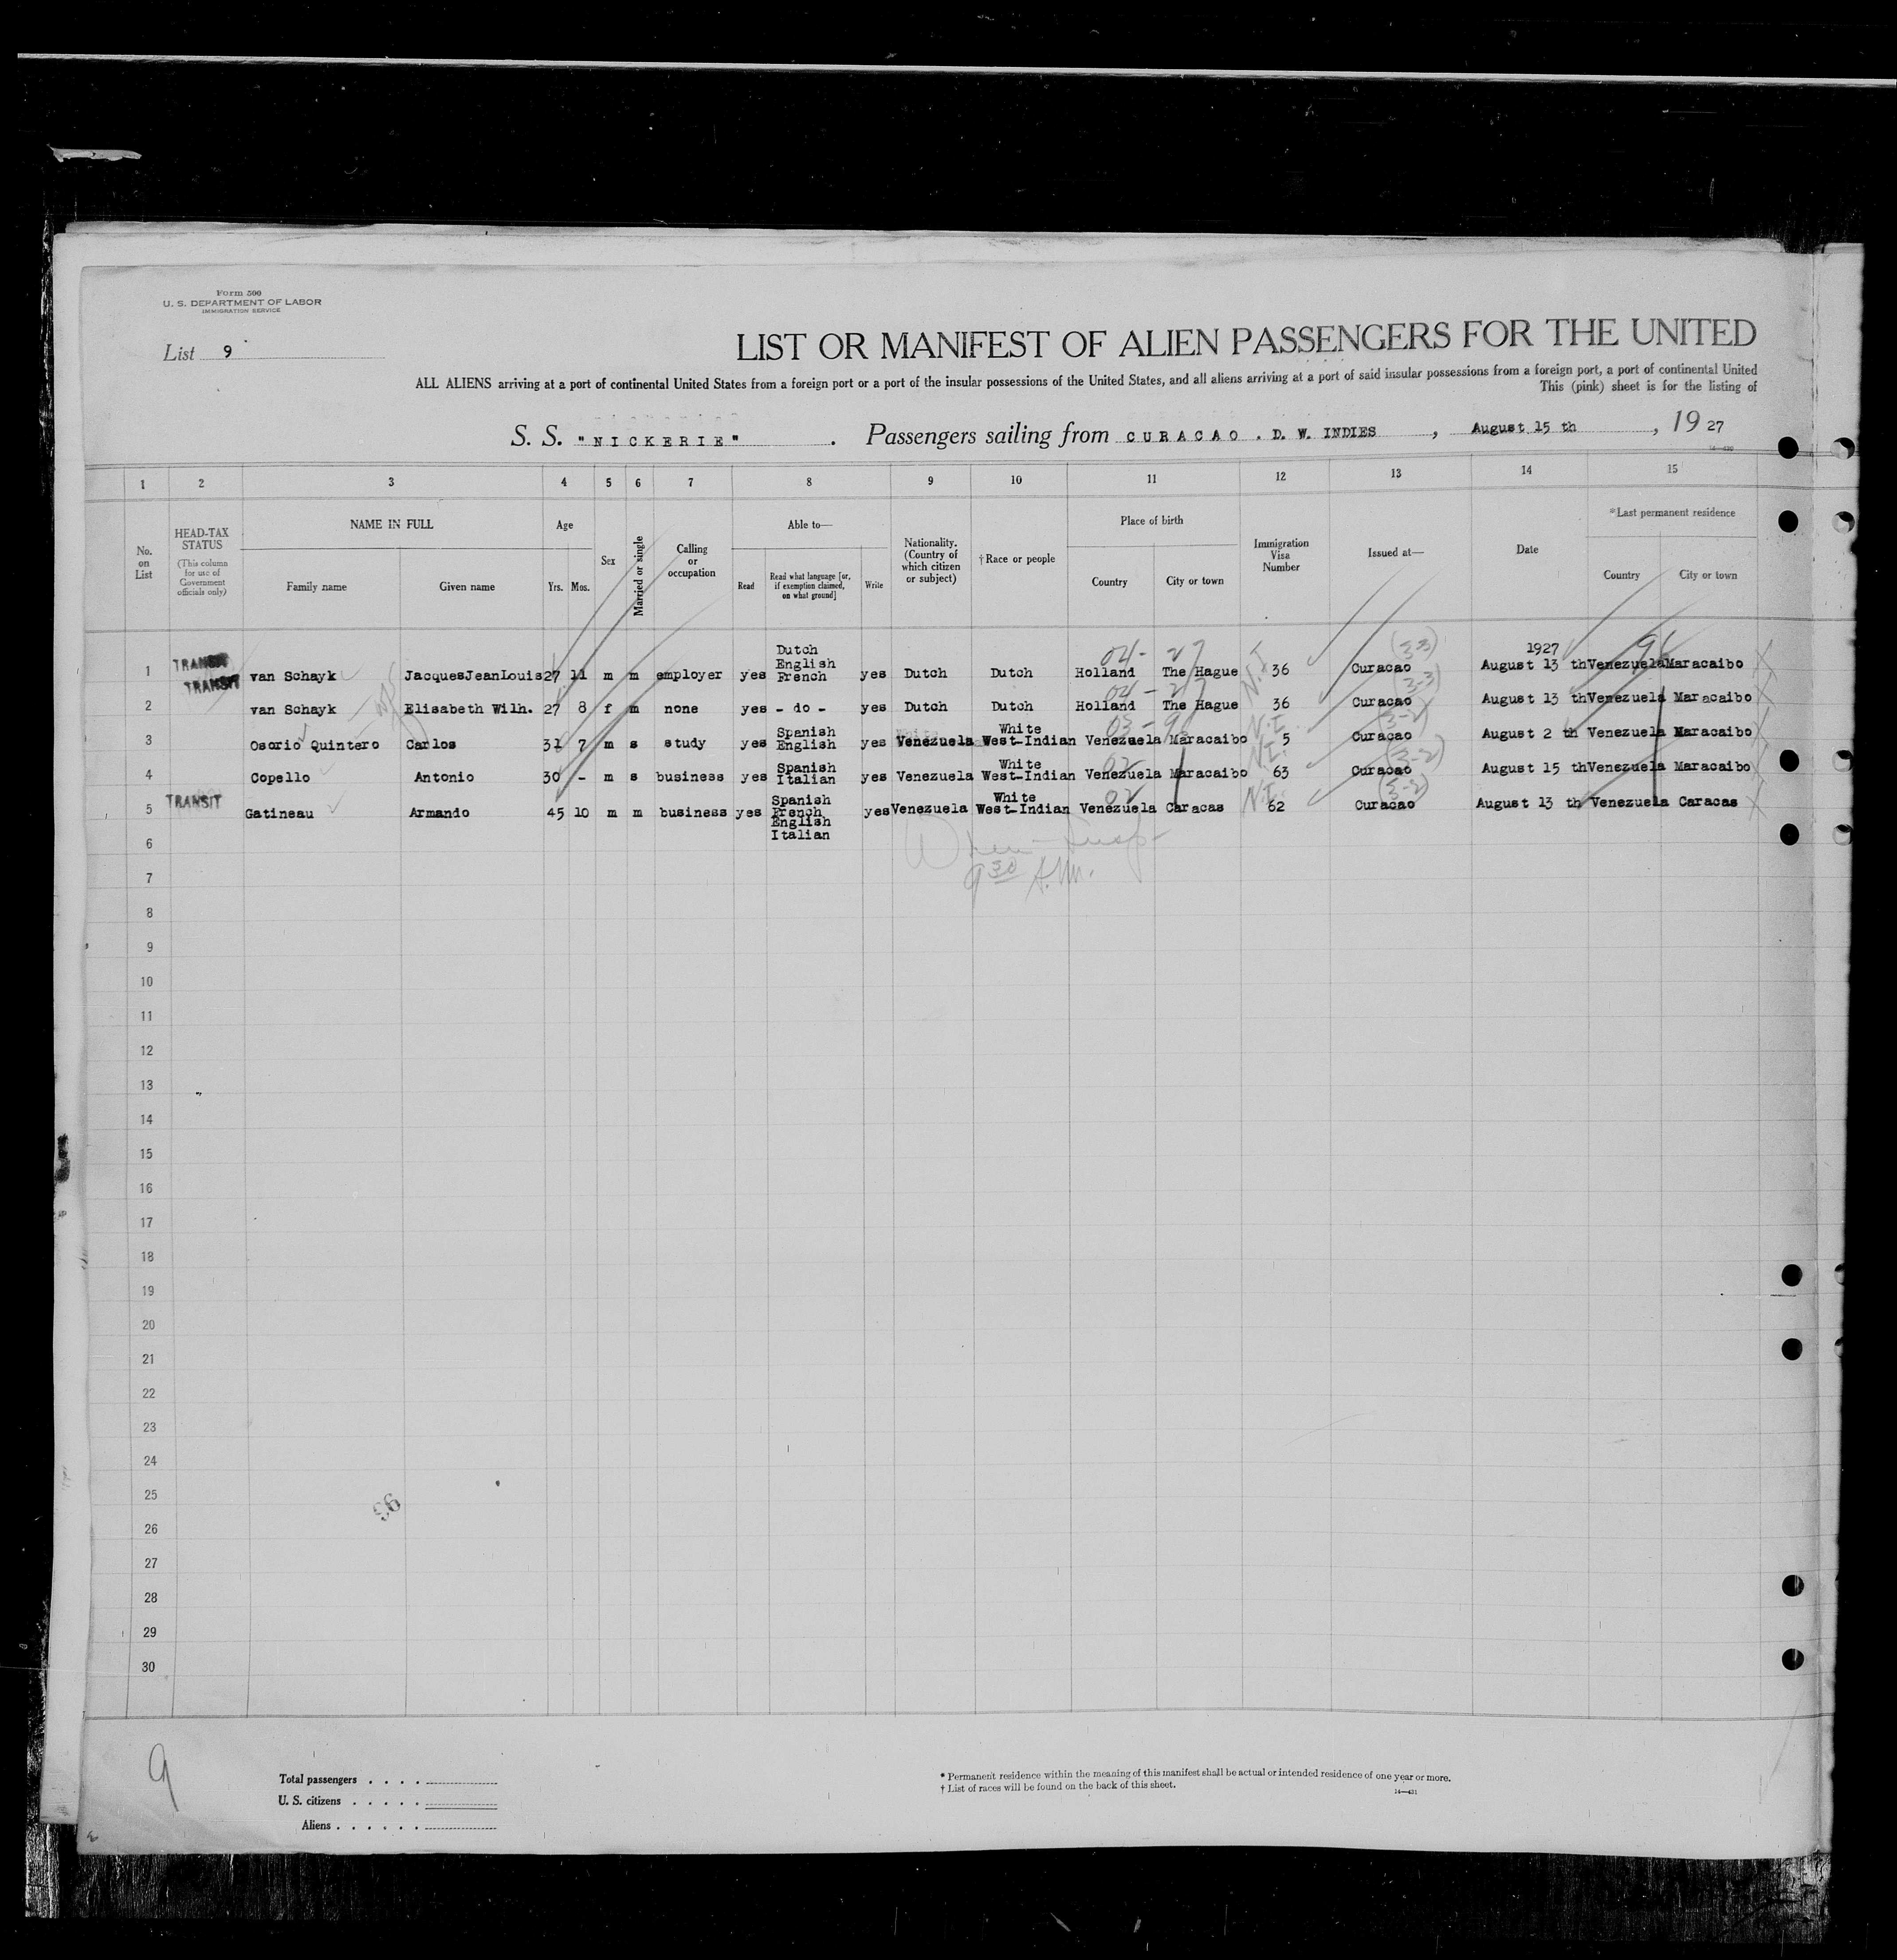 Form 500
U. S. DEPARTMENT OF LABOR
IMMIGRATION SERVICE
List 9
LIST OR MANIFEST OF ALIEN PASSENGERS FOR THE UNITED
ALL ALIENS arriving at a port of continental United States from a foreign port or a port of the insular possessions of the United States, and all aliens arriving at a port of said insular possessions from a foreign port, a port of continental United
This (pink) sheet is for the listing of
S. S. "NICKERIE" . Passengers sailing from CURACAO . D. W. INDIES , August 15 th , 19 27
1 2 3 4 5 6 7 8 9 10 11 12 13 14 15
No. on List
HEAD-TAX STATUS (This column for use of Government officials only)
NAME IN FULL
Family name Given name
Age
Yrs. Mos.
Sex
Married or single
Calling or occupation
Able to—
Read
Read what language [or, if exemption claimed, on what ground]
Write
Nationality. (Country of which citizen or subject)
†Race or people
Place of birth
Country City or town
Immigration Visa Number
Issued at—
Date
*Last permanent residence
Country City or town
1 TRANSIT TRANSIT van Schayk JacquesJeanLouis 27 11 m m employer yes Dutch English French yes Dutch Dutch 04- 27 Holland The Hague N.I 36 Curacao (3-3) 1927 August 13 th Venezuela Maracaibo
2 van Schayk Elisabeth Wilh. 27 8 f m none yes - do - yes Dutch Dutch 04 - 27 Holland The Hague 36 Curacao 3-3) August 13 th Venezuela Maracaibo
3 Osorio Quintero Carlos 31 7 m s study yes Spanish English yes Venezuela White West-Indian Venezuela Maracaibo N.I. 5 Curacao (3-2) August 2 th Venezuela Maracaibo
4 Copello Antonio 30 - m s business yes Spanish Italian yes Venezuela White West-Indian 02 Venezuela Maracaibo N.I. 63 Curacao (3-2) August 15 th Venezuela Maracaibo
5 TRANSIT Gatineau Armando 45 10 m m business yes Spanish French English Italian yes Venezuela White West-Indian 02 Venezuela Caracas N.I. 62 Curacao (3-2) August 13 th Venezuela Caracas
6
9 30 A.M.
7
8
9
10
11
12
13
14
15
16
17
18
19
20
21
22
23
24
25
96
26
27
28
29
30
9
Total passengers
U. S. citizens
Aliens
* Permanent residence within the meaning of this manifest shall be actual or intended residence of one year or more.
† List of races will be found on the back of this sheet.
14—431